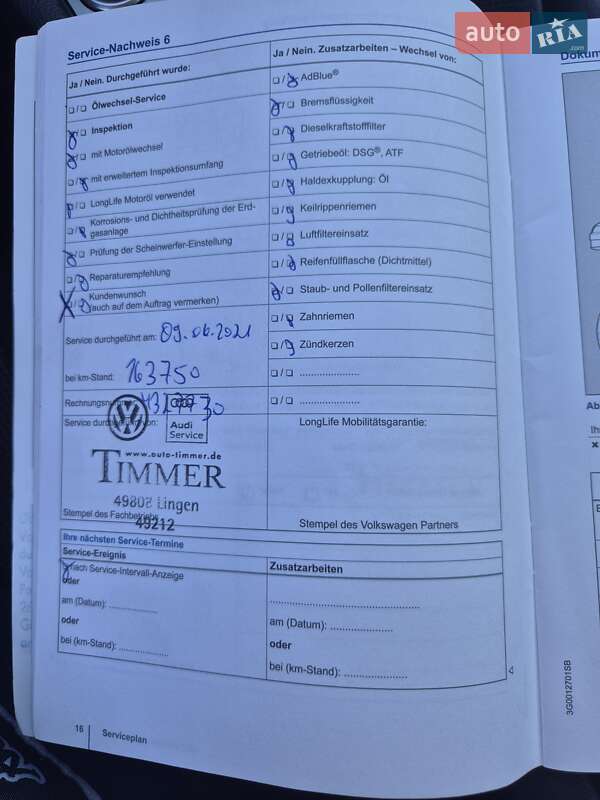 auto RIA.com
Service-Nachweis 6
Ja / Nein. Durchgeführt wurde:
☐/☐ Ölwechsel-Service
☐/☐ Inspektion
☐/☐ mit Motorölwechsel
☐/☐ mit erweitertem Inspektionsumfang
☐/☐ LongLife Motoröl verwendet
☐/☐ Korrosions- und Dichtheitsprüfung der Erd-
gasanlage
☐/☐ Prüfung der Scheinwerfer-Einstellung
☐/☐ Reparaturempfehlung
☐/☐ Kundenwunsch
(auch auf dem Auftrag vermerken)
Service durchgeführt am: 09.06.2021
bei km-Stand: 163750
Rechnungsnummer:
Service durchgeführt von:
Audi
Service
www.auto-timmer.de
TIMMER
49808 Lingen
Stempel des Fachbetriebs
49212
Ja / Nein. Zusatzarbeiten – Wechsel von:
☐/☐ AdBlue®
☐/☐ Bremsflüssigkeit
☐/☐ Dieselkraftstofffilter
☐/☐ Getriebeöl: DSG®, ATF
☐/☐ Haldexkupplung: Öl
☐/☐ Keilrippenriemen
☐/☐ Luftfiltereinsatz
☐/☐ Reifenfüllflasche (Dichtmittel)
☐/☐ Staub- und Pollenfiltereinsatz
☐/☐ Zahnriemen
☐/☐ Zündkerzen
☐/☐ ....................
☐/☐ ....................
LongLife Mobilitätsgarantie:
Stempel des Volkswagen Partners
Ihre nächsten Service-Termine
Service-Ereignis
nach Service-Intervall-Anzeige
oder
am (Datum): ................
oder
bei (km-Stand): ................
Zusatzarbeiten
..................................................
am (Datum): .....................
oder
bei (km-Stand): .....................
16
Serviceplan
Dokum
Ab
Ih
3G0012701SB